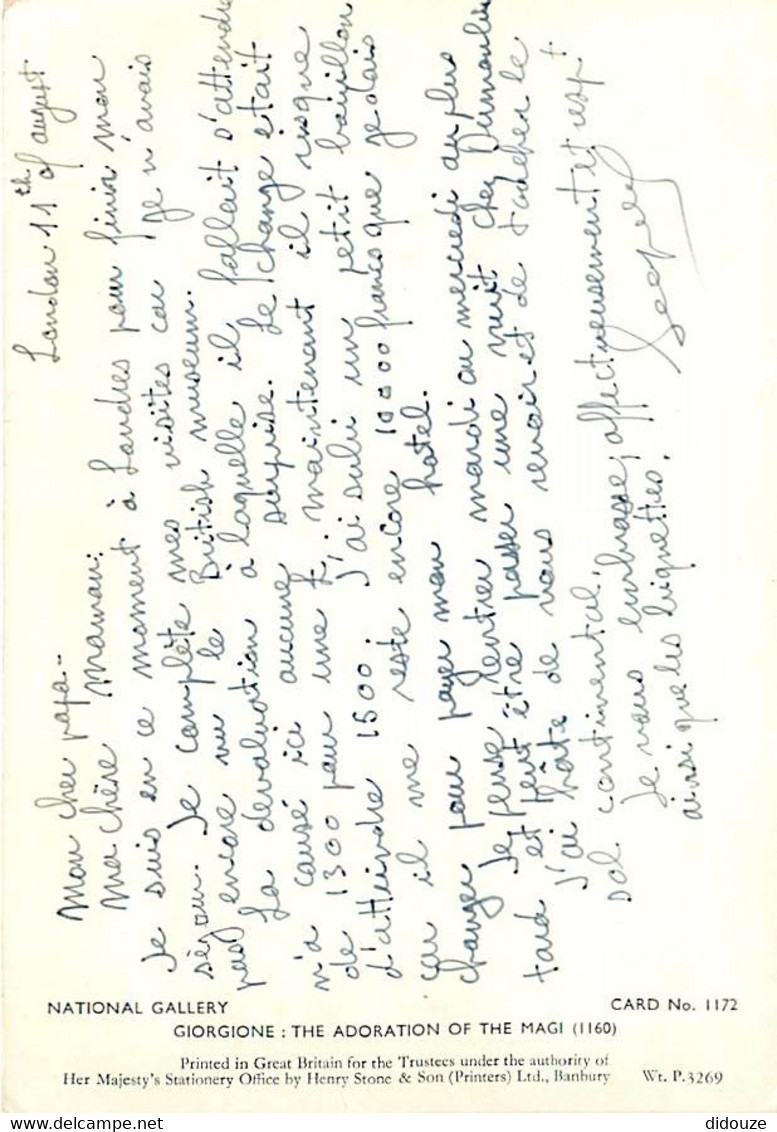 London 11th of august
Mon cher papa -
ma chère Maman:
Je suis en ce moment à Londres pour finir mon
séjour. Je complète mes visites car je n'avais
pas encore vu le British museum.
La devaluation à laquelle il fallait s'attendre
n'a causé ici aucune surprise. Le change était
de 1300 pour une £, maintenant il risque
d'atteindre 1500. J'ai subi un petit bouillon
car il me reste encore 10000 francs que je dois
changer pour payer mon hotel.
Je pense rentrer mardi ou mercredi au plus
tard et peut être passer une nuit chez Dumoulin
J'ai hâte de vous revoir et de toucher le
sol continental.
Je vous embrasse, affectueusement et resp t
ainsi que les biquettes.
NATIONAL GALLERY CARD No. 1172
GIORGIONE : THE ADORATION OF THE MAGI (1160)
Printed in Great Britain for the Trustees under the authority of
Her Majesty's Stationery Office by Henry Stone & Son (Printers) Ltd., Banbury Wt. P.3269
didouze